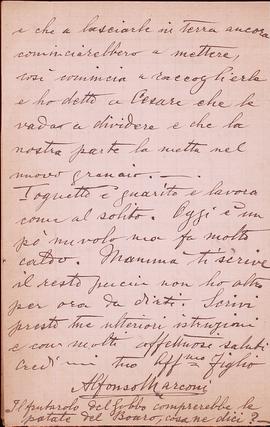 e che a lasciarle in terra ancora
comincierebbero a mettere,
così comincia a raccoglierla
e ho detto a Cesari che la
vada a dividere e che la
nostra parte la metta nel
nuovo granaio. —
Toquetto è guarito e lavora
come al solito. Oggi è un
pò nuvolo ma fa molto
caldo. Mamma ti scrive
il resto percui non ho altro
per ora da dirti. Scrivi
presto tue ulteriori istruzioni
e con molti affettuosi saluti
credimi tuo Aff.mo Figlio
Alfonso Marconi
Il fruttarolo del Gobbo comprerebbe le
patate del Boaro, cosa ne dici?